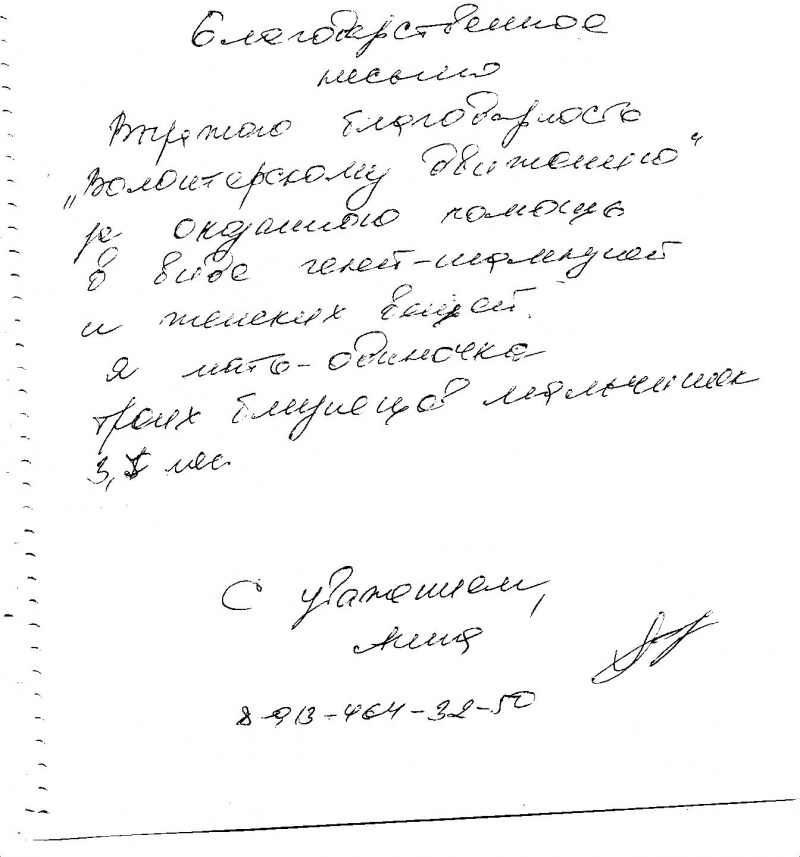 Благодарственное
письмо
Выражаю благодарность
„Волонтерскому движению“
за оказанную помощь
в виде
и женских вещей.
я мать-одиночка
троих близнецов мальчишек
3,5 мес
С уважением,
Анна
8-913-464-32-50